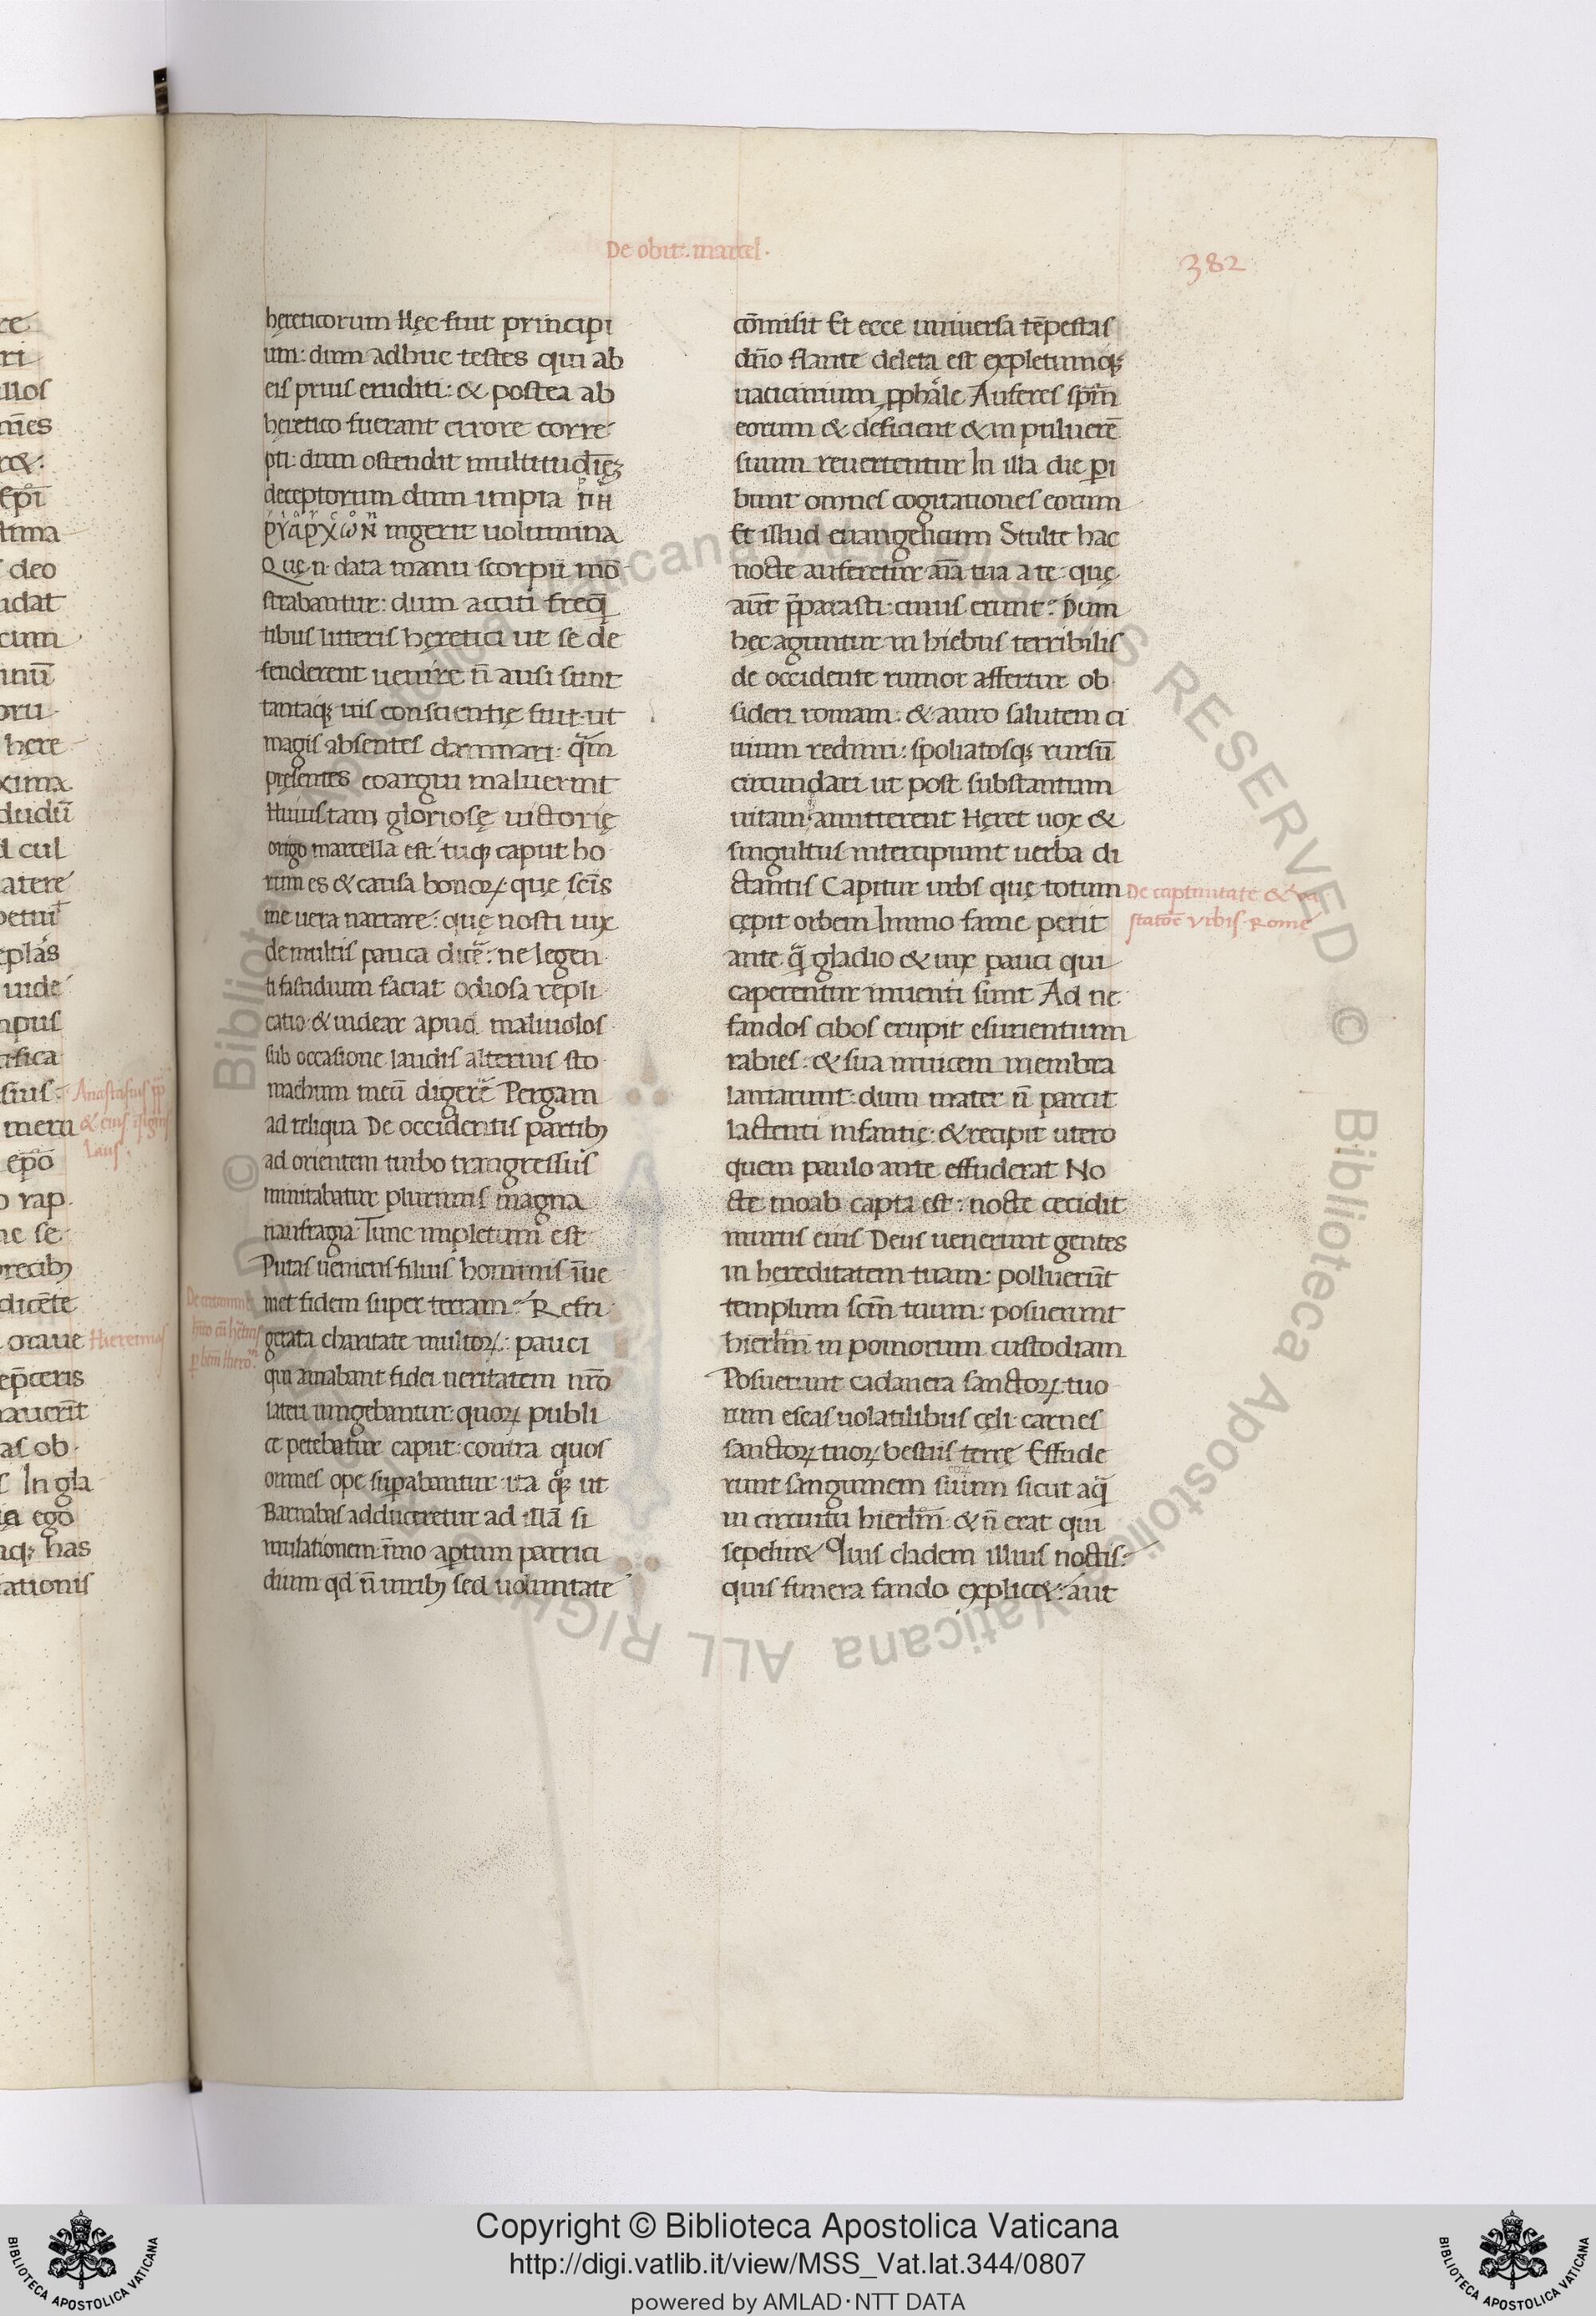 De obit. marcel.
382
hęreticorum Hęc fuit principi
um: dum adhuc testes qui ab
eis prius eruditi: & postea ab
hęretico fuerant errore corre
pti: dum ostendit multitudinē
deceptorum dum impia
ingerit uolumina
Quę n̄ data manu scorpii mō
strabantur: dum acciti freq̄
tibus litteris hęretici ut se de
fenderent uenire n̄ ausi sunt
tantaq; uis conscientię fuit ut
magis absentes damnari q̄m
pręsentes coargui maluerint
Huius tam gloriosę uictorię
origo marcella est: tuq; caput ho
rum es & causa bonoꝝ quę scis
me uera narrare: quę nosti uix
de multis pauca dicere: ne legen
ti fastidium faciat odiosa repli
catio & uidear apud maliuolos
sub occasione laudis alterius sto
machum meū digerere Pergam
ad reliqua De occidentis partibȝ
ad orientem turbo trangressus
minitabatur plurimis magna
naufragia Tunc impletum est
Putas ueniens filius hominis īue
niet fidem super terram? Refri
gerata charitate multoꝝ: pauci
qui amabant fidei ueritatem nr̄o
lateri iungebantur: quoꝝ publi
ce petebatur caput: contra quos
omnes ope suꝑabantur: ita ut
Barnabas adduceretur ad illā si
mulationem: īmo aptum parrici
dium qd n̄ uiribȝ sed uoluntate
cōmisit Et ecce uniuersa tēpestas
dn̄o flante deleta est expletumq;
uaticinium ꝓphāle Auferes spm̄
eorum & deficient & in puluerē
suum reuertentur In illa die ꝑi
bunt omnes cogitationes eorum
Et illud euangelicum Stulte hac
nocte auferetur aīa tua a te: quę
aūt p̄parasti: cuius erunt? Dum
hęc aguntur in hiebus terribilis
de occidente rumor affertur ob
sideri romam: & auro salutem ci
uium redimi: spoliatosq; rursū
circundari ut post substantiam
uitam amitterent Hęret uox &
singultus intercipiunt uerba di
ctantis Capitur urbs quę totum
cępit orbem Immo fame perit
ante q̄ gladio & uix pauci qui
caperentur inuenti sunt Ad ne
fandos cibos erupit esurientium
rabies: & sua inuicem membra
laniarunt: dum mater n̄ parcit
lactenti infantię: & recipit utero
quem paulo ante effuderat No
cte moab capta est: nocte cecidit
murus eius Deus uenerunt gentes
in hereditatem tuam: polluerūt
templum scm̄ tuum: posuerunt
hierl̄m in pomorum custodiam
Posuerunt cadauera sanctoꝝ tuo
rum escas uolatilibus cęli carnes
sanctoꝝ tuoꝝ bestiis terrę Effude
eoꝝ
runt sanguinem suum sicut aq̄
in circuitu hierl̄m & n̄ erat qui
sepelir& Quis cladem illius noctis:
quis funera fando explic&: aut
De captiuitate & ua
statōe Vrbis Romę
Copyright © Biblioteca Apostolica Vaticana
http://digi.vatlib.it/view/MSS_Vat.lat.344/0807
powered by AMLAD·NTT DATA